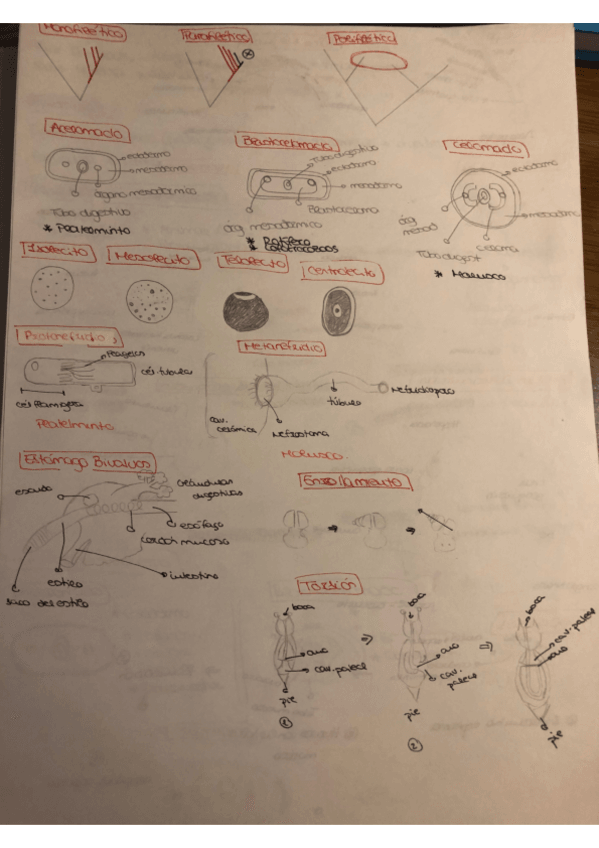 Monofilético
Parafilético
Polifilético
Acelomado
ectodermo
mesodermo
órgano mesodérmico
Tubo digestivo
* Platelminto
Blastocelomado
Tubo digestivo
ectodermo
mesodermo
Blastoceloma
órg mesodérmico
* Rotífero
Celomado
ectodermo
mesodermo
órg
Tubo digest
celoma
* Molusco
Isolecito
Mesolecito
Telolecito
Centrolecito
Protonefridios
Flagelos
cél. túbulo
cél flamígera
Platelminto
Metanefridio
cav.
celómica
Nefrostoma
túbulo
Nefridioporo
Molusco.
Estómago Bivalvos
escudo
Glándulas
digestivas
esófago
cordón mucoso
intestino
estilo
saco del estilo
Enrollamiento
Torsión
boca
ano
cav. paleal
pie
1
boca
ano
cav.
paleal
pie
2
boca
cav. paleal
ano
pie